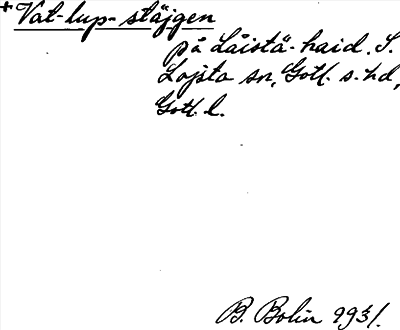 +Vat-lup-stäjgen
på Låistä-haid. S.
Lojsta sn, Gotl. s. hd,
Gotl. l.
B. Bolin 1931.